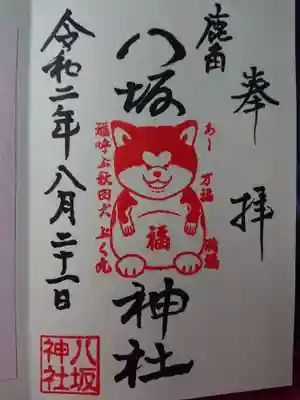 奉拝
鹿角
八坂神社
あー
万福
満福
福
福呼ぶ秋田犬
令和二年八月二十一日
八坂
神社